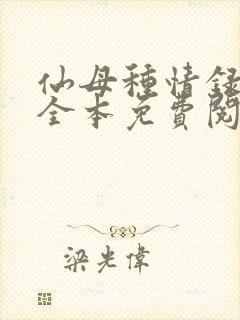 仙母種情録
全本免費閱
梁光偉